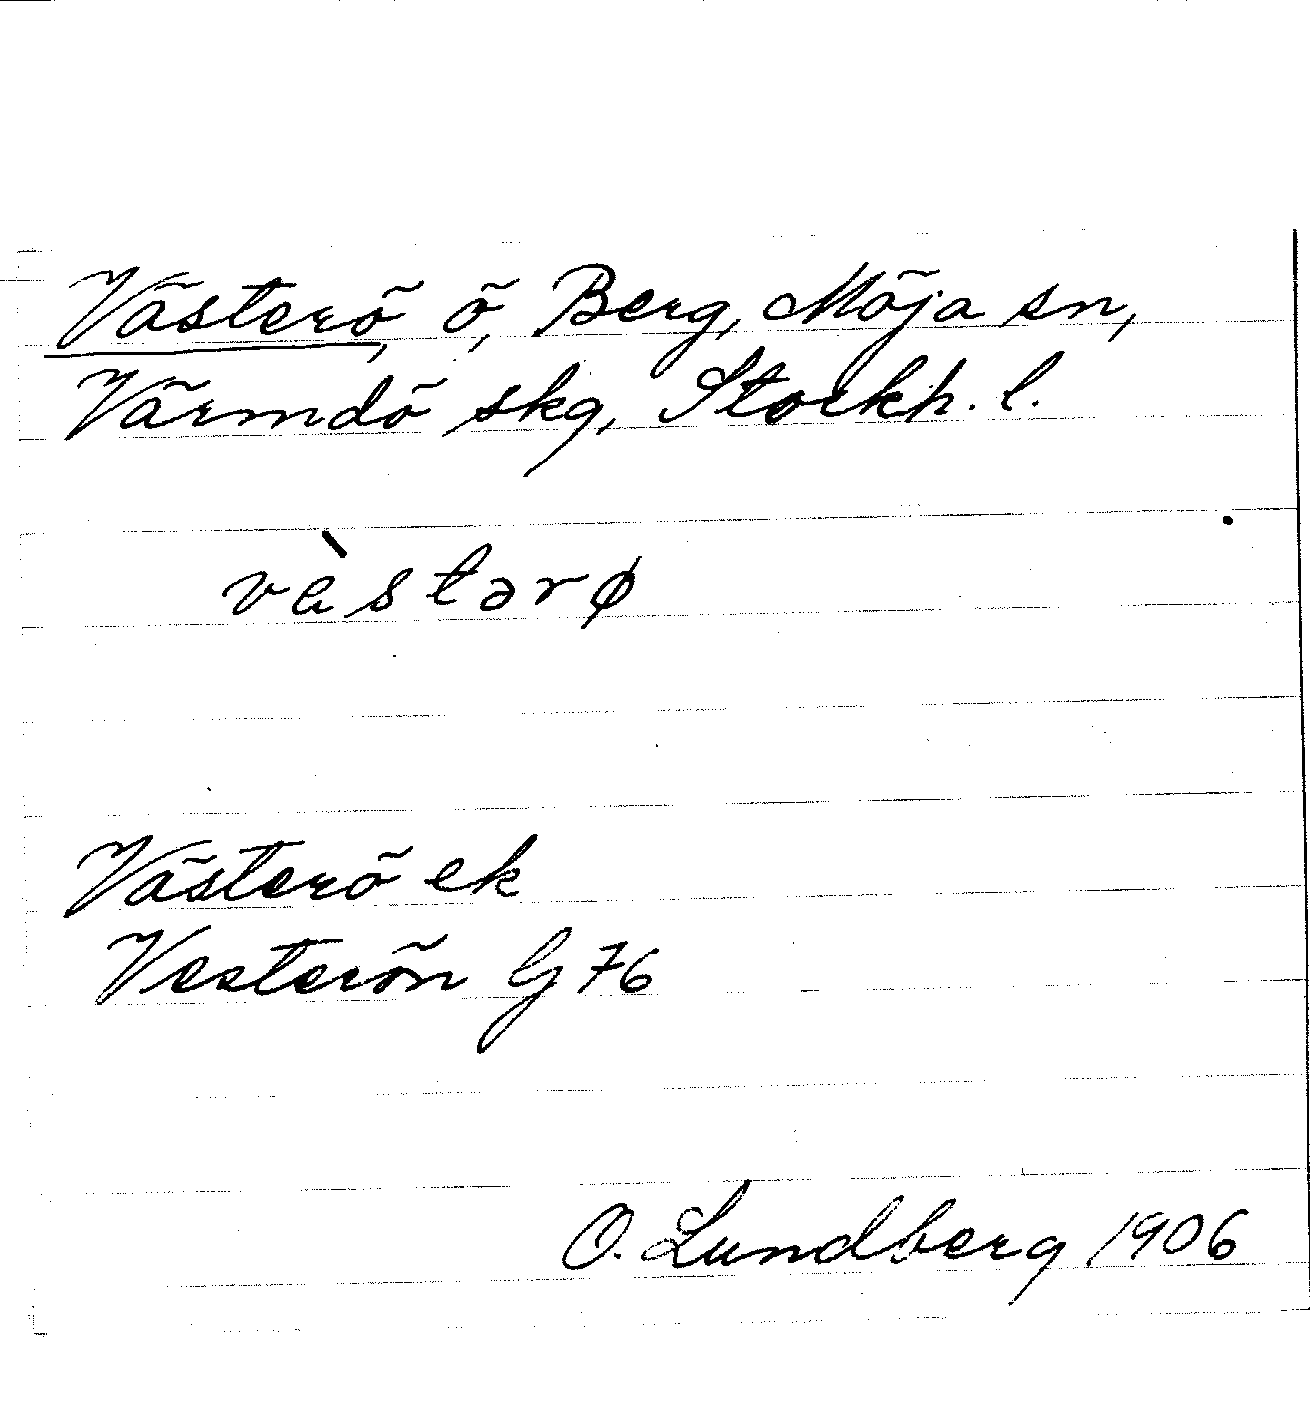 Västerö, ö, Berg, Möja sn,
Värmdö skg, Stockh. l.
vàstərø
Västerö ek
Vesterön G 76
O. Lundberg 1906